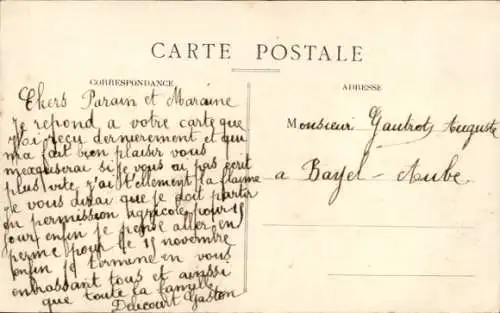 CARTE POSTALE
CORRESPONDANCE
ADRESSE
Chers Parain et Maraine
Je repond a votre carte que
j'ai reçu dernierement et qui
m'a fait bien plaisir vous
si je vous ai pas ecrit
plus vite j'ai tellement la flaime
Je vous dirai que je doit partir
en permission agricole pour 15
jour enfin je pense aller en
perme pour le 15 novembre
enfin je termine en vous
enbrassant tous et ainssi
que toute la famille
Delicourt Gaston
Monsieur Gautrot Auguste
a Bayel - Aube